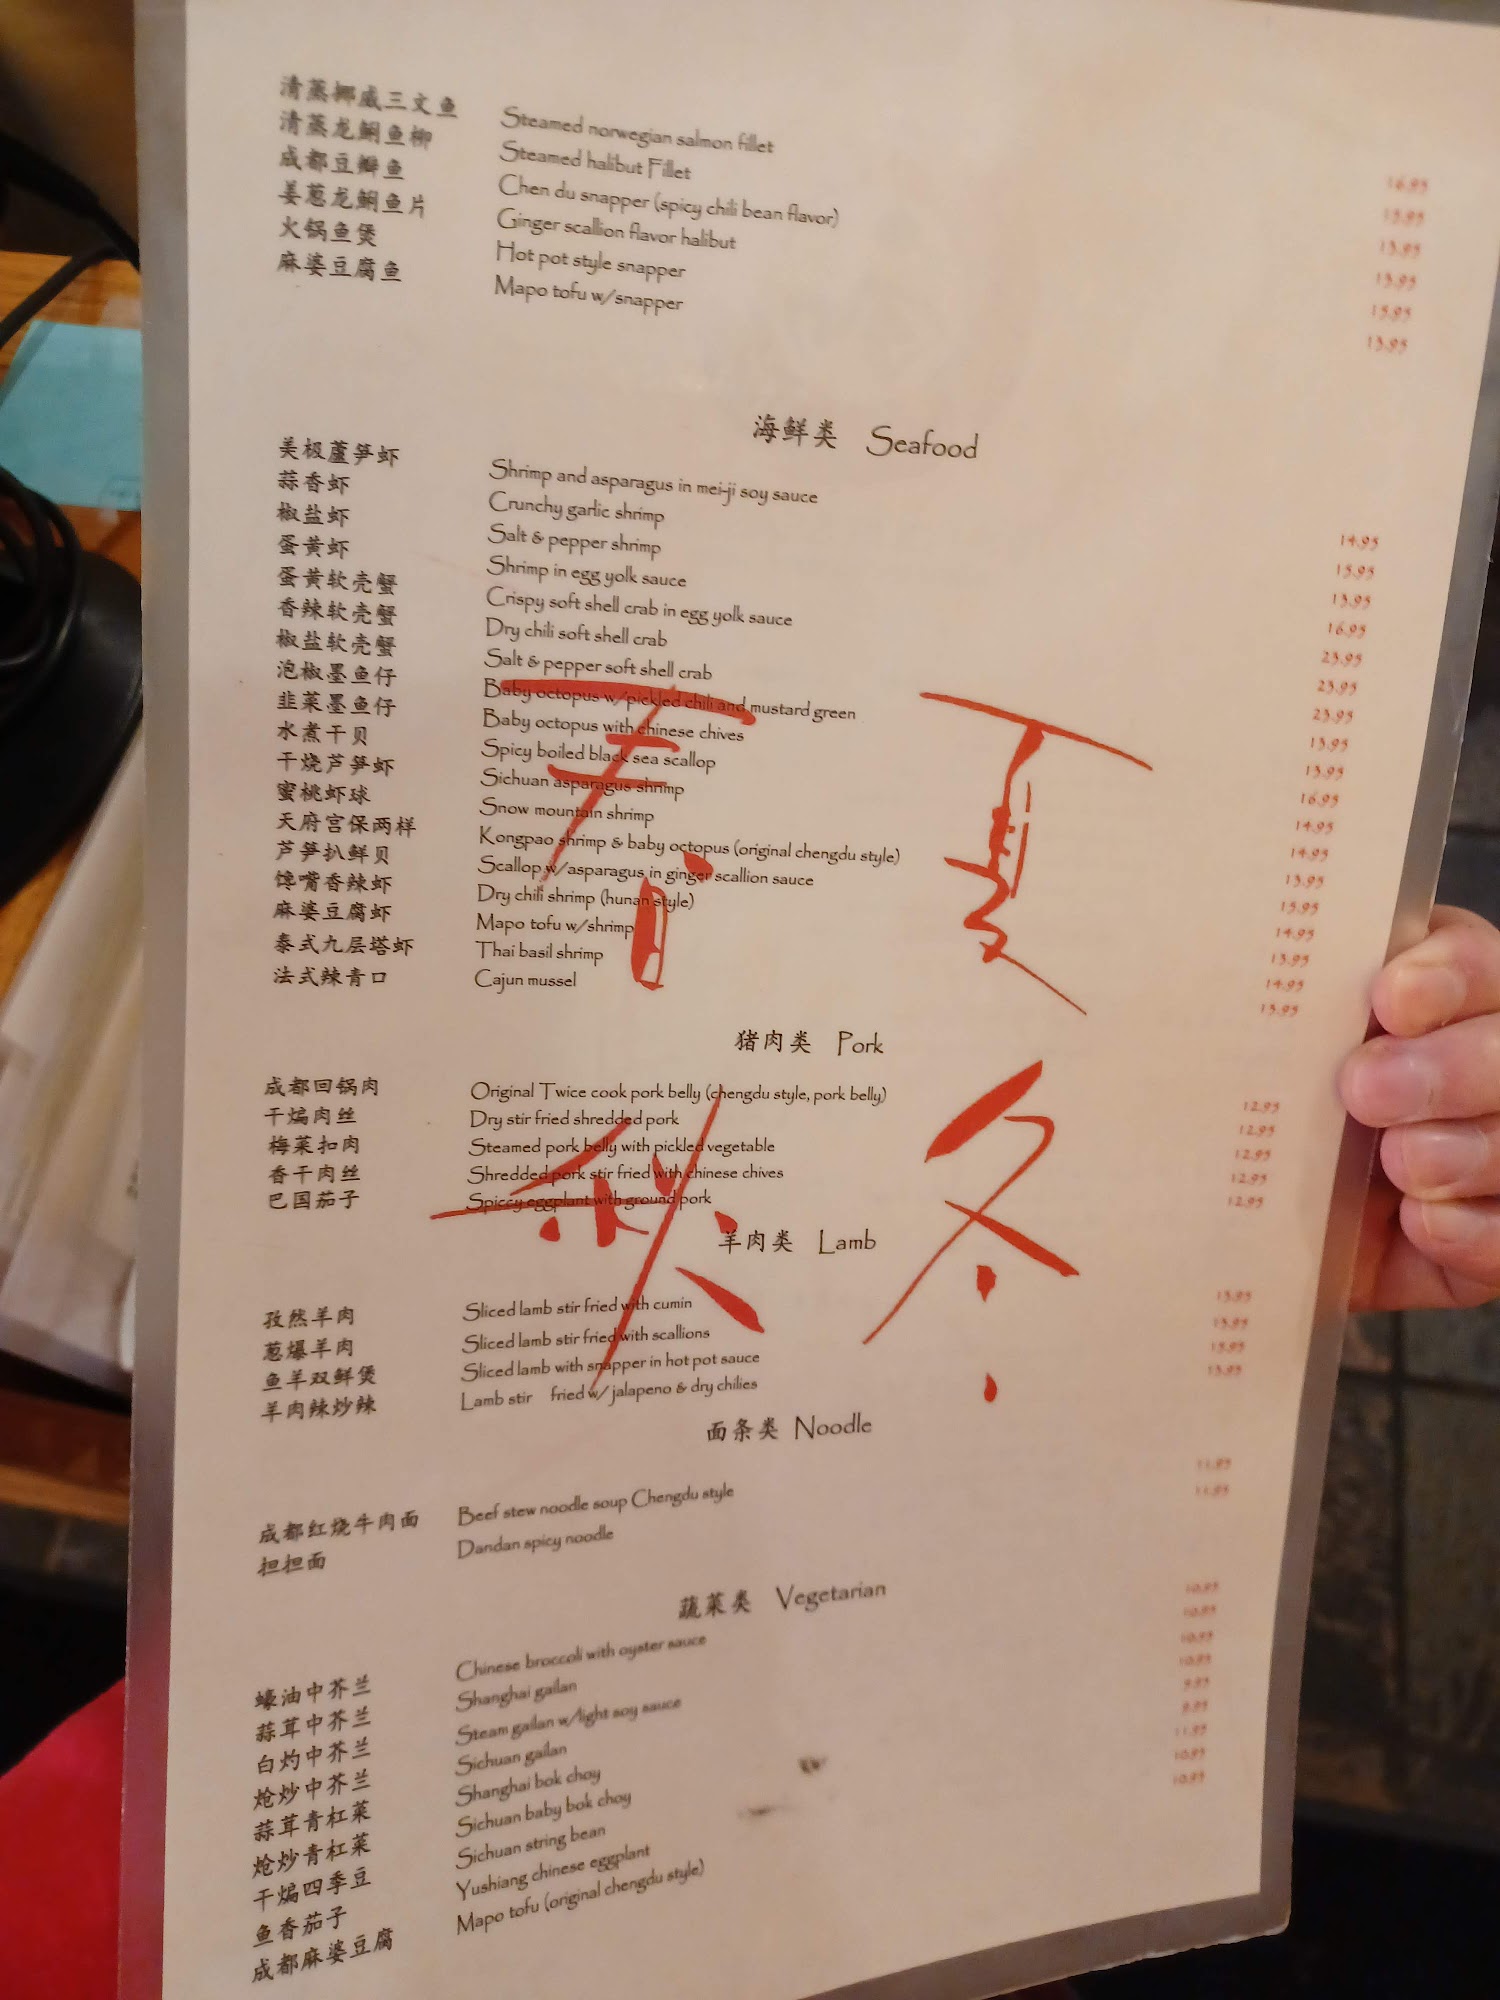 清蒸挪威三文鱼 Steamed norwegian salmon fillet 16.95
清蒸龙鮰鱼柳 Steamed halibut Fillet 15.95
成都豆瓣鱼 Chen du snapper (spicy chili bean flavor) 13.95
姜葱龙鮰鱼片 Ginger scallion flavor halibut 13.95
火锅鱼煲 Hot pot style snapper 15.95
麻婆豆腐鱼 Mapo tofu w/snapper 13.95
海鲜类 Seafood
美极蘆笋虾 Shrimp and asparagus in mei-ji soy sauce 14.95
蒜香虾 Crunchy garlic shrimp 15.95
椒盐虾 Salt & pepper shrimp 13.95
蛋黄虾 Shrimp in egg yolk sauce 16.95
蛋黄软壳蟹 Crispy soft shell crab in egg yolk sauce 23.95
香辣软壳蟹 Dry chili soft shell crab 23.95
椒盐软壳蟹 Salt & pepper soft shell crab 23.95
泡椒墨鱼仔 Baby octopus w/pickled chili and mustard green 13.95
韭菜墨鱼仔 Baby octopus with chinese chives 13.95
水煮干贝 Spicy boiled black sea scallop 16.95
干烧芦笋虾 Sichuan asparagus shrimp 14.95
蜜桃虾球 Snow mountain shrimp 14.95
天府宫保两样 Kongpao shrimp & baby octopus (original chengdu style) 13.95
芦笋扒鲜贝 Scallop w/asparagus in ginger scallion sauce 15.95
馋嘴香辣虾 Dry chili shrimp (hunan style) 14.95
麻婆豆腐虾 Mapo tofu w/shrimp 13.95
泰式九层塔虾 Thai basil shrimp 14.95
法式辣青口 Cajun mussel 13.95
春 夏
猪肉类 Pork
成都回锅肉 Original Twice cook pork belly (chengdu style, pork belly) 12.95
干煸肉丝 Dry stir fried shredded pork 12.95
梅菜扣肉 Steamed pork belly with pickled vegetable 12.95
香干肉丝 Shredded pork stir fried with chinese chives 12.95
巴国茄子 Spiccy eggplant with ground pork 12.95
秋 冬
羊肉类 Lamb
孜然羊肉 Sliced lamb stir fried with cumin 13.95
葱爆羊肉 Sliced lamb stir fried with scallions 13.95
鱼羊双鲜煲 Sliced lamb with snapper in hot pot sauce 15.95
羊肉辣炒辣 Lamb stir fried w/ jalapeno & dry chilies 13.95
面条类 Noodle
成都红烧牛肉面 Beef stew noodle soup Chengdu style 11.95
担担面 Dandan spicy noodle 11.95
蔬菜类 Vegetarian
蠔油中芥兰 Chinese broccoli with oyster sauce 10.95
蒜茸中芥兰 Shanghai gailan 10.95
白灼中芥兰 Steam gailan w/light soy sauce 10.95
炝炒中芥兰 Sichuan gailan 10.95
蒜茸青杠菜 Shanghai bok choy 9.95
炝炒青杠菜 Sichuan baby bok choy 9.95
干煸四季豆 Sichuan string bean 11.95
鱼香茄子 Yushiang chinese eggplant 10.95
成都麻婆豆腐 Mapo tofu (original chengdu style) 10.95